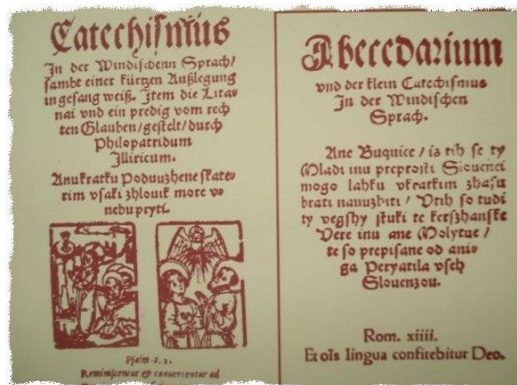 Catechismus
In der Windischenn Sprach/
sambt einer kürtzen Außlegung
in gesang weiß. Item die Lita-
nai vnd ein predig vom rech
ten Glauben/gestelt/durch
Philopatridum
Illiricum.
Anu kratku Poduuzhene skate-
rim vsaki zhlouik more vo
nebu pryti.
Psalm
Reminiscentur et conuertentur ad
Abecedarium
vnd der klein Catechismus
In der Windischen
Sprach.
Ane Buquice/is tih se ty
Mladi inu preprosti Slouenci
mogo lahku vkratkim zhasu
brati nauuzhiti/Vtih so tudi
ty vegshy stuki te kerszhanske
Vere inu ane Molytue/
te so prepisane od ani-
ga Peryatila vseh
Slouenzou.
Rom. xiiii.
Et oīs lingua confitebitur Deo.